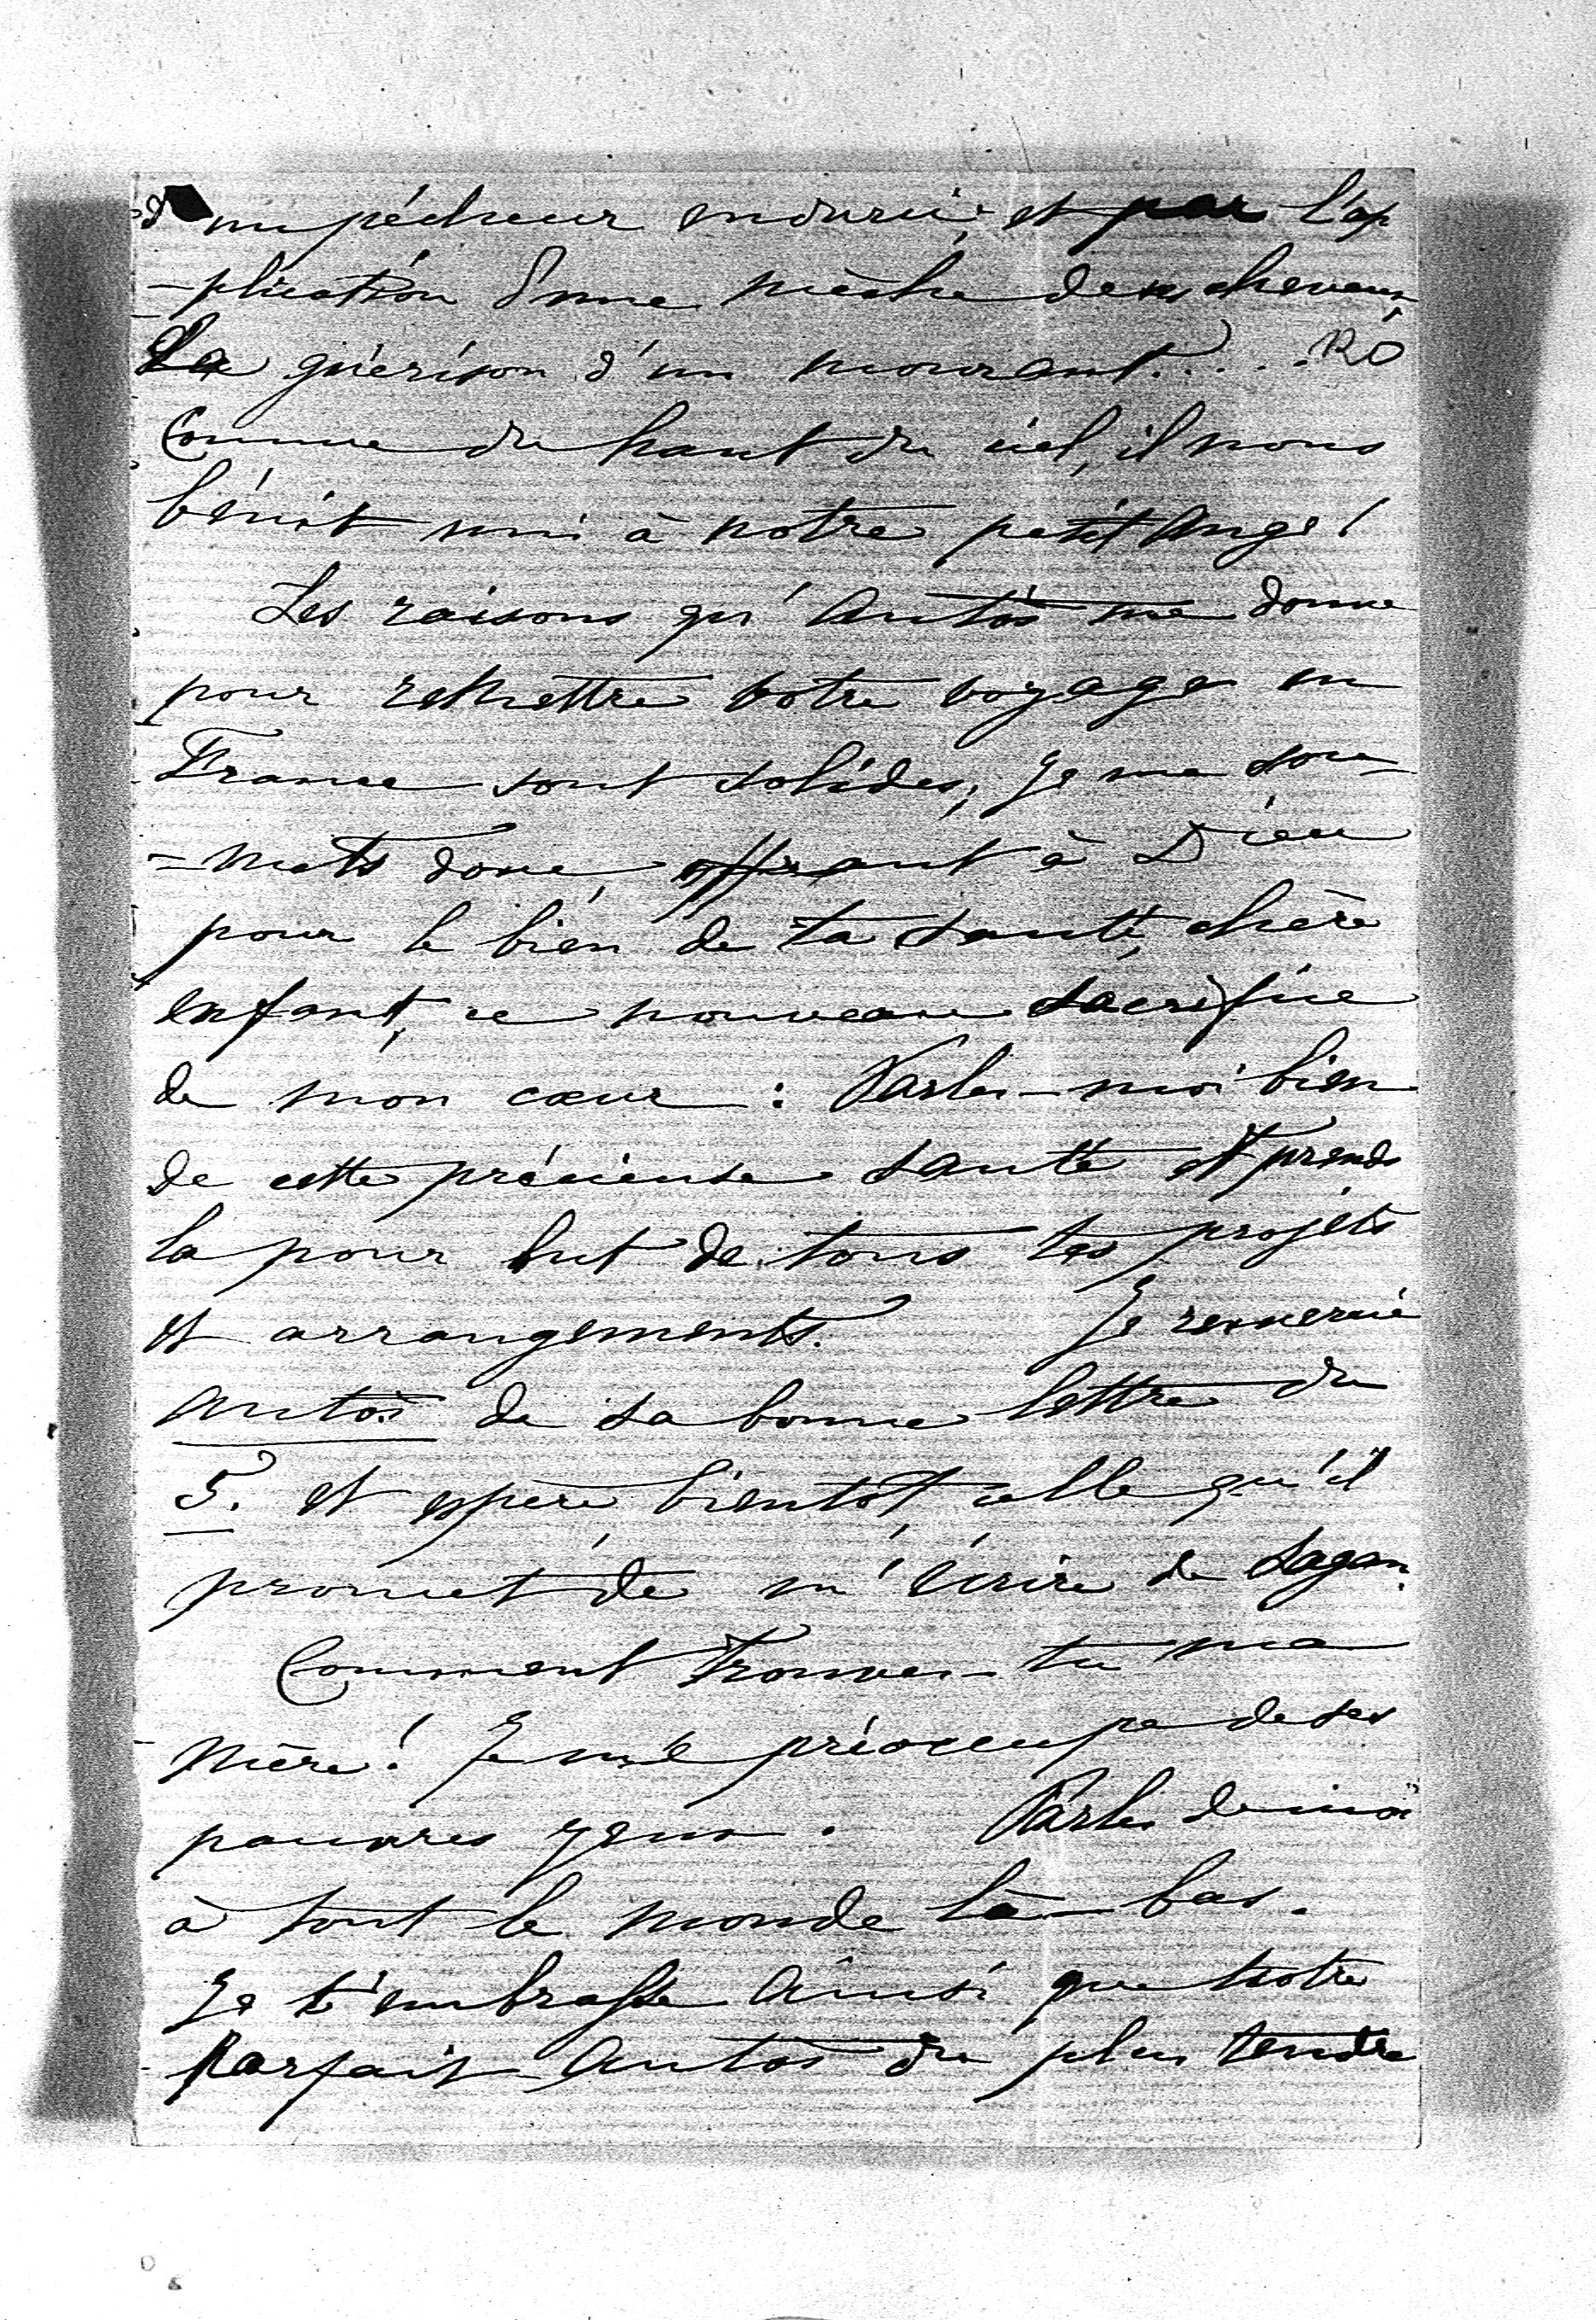 d'un pécheur endurci, et par l'ap
-plication d'une mèche de ses cheveux
La guérison d'un mourant.....
Comme du haut du ciel, il nous
bénit uni à notre petit Ange!
Les raisons qu'Antoi me donne
pour remettre votre voyage en
France sont solides, je me sou-
-mets donc, offrant à Dieu
pour le bien de ta santé, chère
enfant, ce nouveau sacrifice
de mon cœur : Parles-moi bien
de cette précieuse santé et prends
la pour but de tous tes projets
et arrangements. Je remercie
Antoi de sa bonne lettre du
5. et espère bientôt celle qu'il
promet de m'écrire de Sagan.
Comment trouves-tu ma
Mère! Je me préoccupe de ses
pauvres yeux. Parles de moi
à tout le monde là-bas.
Je t'embrasse ainsi que notre
parfait Antoi du plus tendre